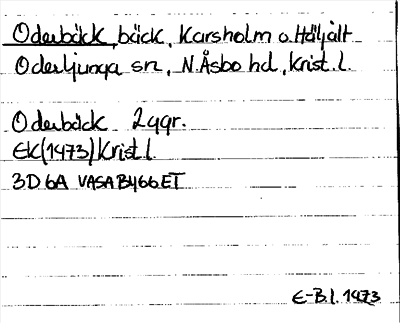 Oderbäck, bäck, Karsholm o. Häljalt
Oderljunga sn, N. Åsbo hd, Krist. l.
Oderbäck 2 ggr.
EK(1973) Krist l.
3D 6A VASABYGGET
E-B. l. 1973